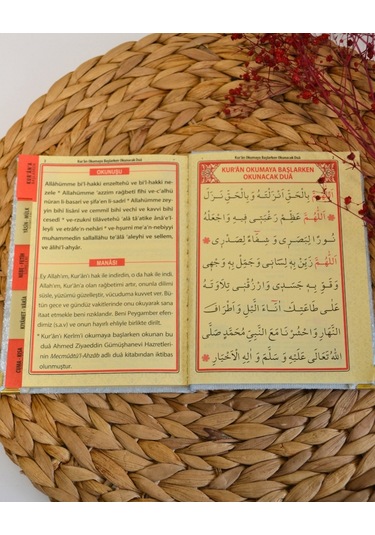 Kur'ân Okumaya Başlarken Okunacak Duâ
OKUNUŞU
Allâhümme bi'l-hakkı enzeltehü ve bi'l-hakkı ne-
zele * Allâhümme 'azzim rağbetî fîhi ve-c'alhü
nûran li-basarî ve şifâ'en li-sadrî * Allâhümme zey-
yin bihî lisânî ve cemmil bihî vechî ve kavvi bihî
cesedî * ve-rzuknî tilâvetehû 'alâ tâ'atike ânâ'e'l-
leyli ve etrâfe'n-nehâri * ve-hşurnî me'a'n-nebiyyi
muhammedin sallallâhu te'âlâ 'aleyhi ve sellem,
ve âlihi'l-ahyâr.
MANÂSI
Ey Allah'ım, Kur'ân'ı hak ile indirdin, o da hak ile indi.
Allah'ım, Kur'ân'a olan rağbetimi artır, onunla dilimi
süsle, yüzümü güzelleştir, vücuduma kuvvet ver. Bü-
tün gece ve gündüz vakitlerinde onu okuyarak sana
itaat etmekle beni rızıklandır. Beni Peygamber efen-
dimiz (s.a.v) ve onun hayırlı ehliyle birlikte dirilt.
* Kur'ân'ı Kerîm'i okumaya başlarken okunan bu
duâ Ahmed Ziyaeddin Gümüşhanevi Hazretleri-
nin Mecmûatü'l-Ahzâb adlı duâ kitabından iktibas
olunmuştur.
Kur'ân Okumaya Başlarken Okunacak Duâ
KUR'ÂN OKUMAYA BAŞLARKEN
OKUNACAK DUÂ
اَللّٰهُمَّ بِالْحَقِّ اَنْزَلْتَهُ وَ بِالْحَقِّ نَزَلَ
اَللّٰهُمَّ عَظِّمْ رَغْبَتِى فِيهِ وَاجْعَلْهُ
نُورًا لِبَصَرِى وَ شِفَاءً لِصَدْرِى
اَللّٰهُمَّ زَيِّنْ بِهِ لِسَانِى وَجَمِّلْ بِهِ وَجْهِى
وَقَوِّ بِهِ جَسَدِى وَارْزُقْنِى تِلَاوَتَهُ
عَلٰى طَاعَتِكَ اٰنَاءَ الَّيْلِ وَاَطْرَافَ
النَّهَارِ وَاحْشُرْنَا مَعَ النَّبِىِّ مُحَمَّدٍ صَلَّى
اللّٰهُ تَعَالٰى عَلَيْهِ وَسَلَّمَ وَ اٰلِهِ الْاَخْيَارِ